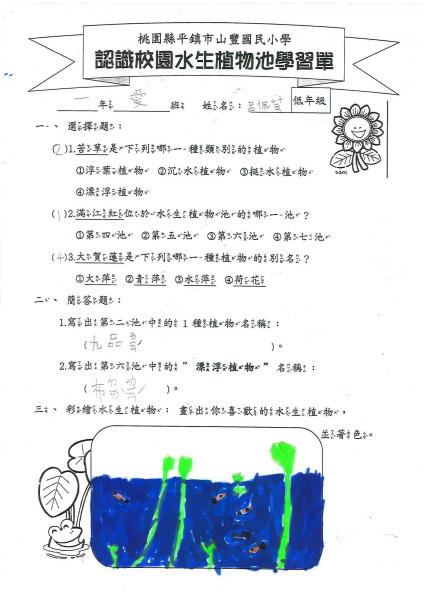 桃園縣平鎮市山豐國民小學
認識校園水生植物池學習單
一年 愛 班 姓名： 低年級
一、選擇題：
(2)1.苦草是下列哪一種類別的植物
①浮葉植物 ②沉水植物 ③挺水植物
④漂浮植物
(1)2.滿江紅位於水生植物池的哪一池？
①第四池 ②第五池 ③第六池 ④第七池
(4)3.大賀蓮是下列哪一種植物的別名？
①大萍 ②青萍 ③水萍 ④荷花
二、簡答題：
1.寫出第二池中的1種植物名稱：
(九品 )。
2.寫出第六池中的"漂浮植物"名稱：
(布 )。
三、彩繪水生植物：畫出你喜歡的水生植物，
並著色。